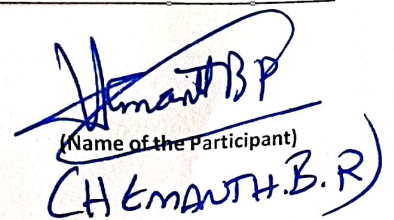 Hemanth B P
(Name of the Participant)
(HEMANTH.B.R)